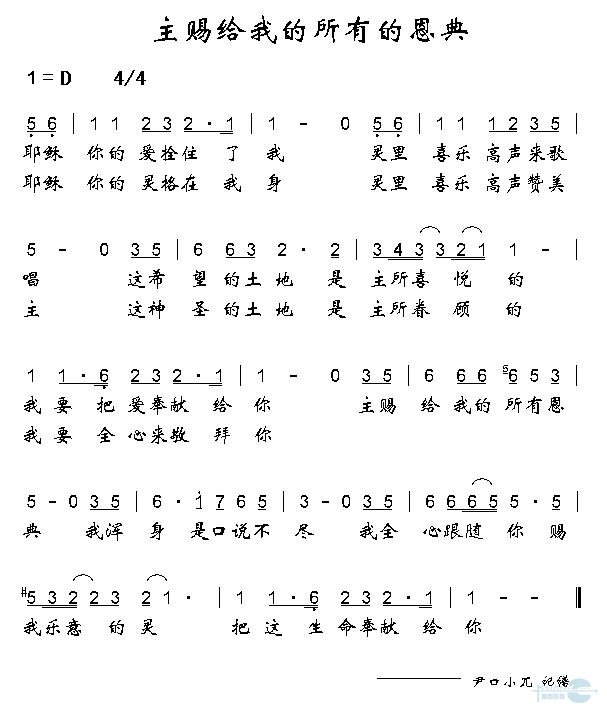 主赐给我的所有的恩典
1=D 4/4
5 6 | 1 1 2 3 2 · 1 | 1 - 0 5 6 | 1 1 1 2 3 5 |
耶稣 你的 爱拴住 了我 灵里 喜乐 高声来歌
耶稣 你的 灵格在 我身 灵里 喜乐 高声赞美
5 - 0 3 5 | 6 6 3 2 · 2 | 3 4 3 3 2 1 1 - |
唱 这希 望的土地 是 主所喜 悦 的
主 这神 圣的土地 是 主所眷 顾 的
1 1 · 6 2 3 2 · 1 | 1 - 0 3 5 | 6 6 6 5 6 5 3 |
我 要 把 爱奉献 给 你 主赐 给 我的 所有恩
我 要 全 心来敬 拜 你
5 - 0 3 5 | 6 · 1 7 6 5 | 3 - 0 3 5 | 6 6 6 6 5 5 · 5 |
典 我浑 身 是口说不 尽 我全 心跟随 你 赐
5 3 2 2 3 2 1 · | 1 1 · 6 2 3 2 · 1 | 1 - -
我乐意 的 灵 把 这 生 命奉献 给 你
尹口小兀 记谱